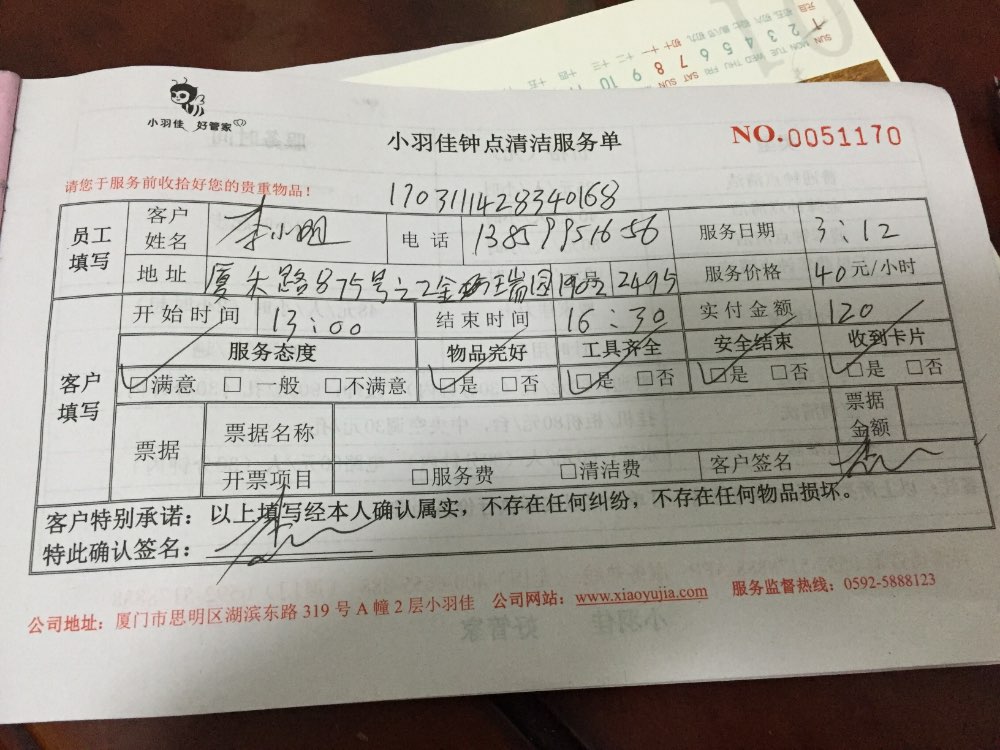 小羽佳 好管家
小羽佳钟点清洁服务单
NO.0051170
请您于服务前收拾好您的贵重物品！
1703111428340168
员工填写 客户姓名 李小明 电话 13859951656 服务日期 3:12
地址 厦禾路875号之2金 瑞园 2495 服务价格 40元/小时
客户填写 开始时间 13:00 结束时间 16:30 实付金额 120
服务态度 物品完好 工具齐全 安全结束 收到卡片
□满意 □一般 □不满意 □是 □否 □是 □否 □是 □否 □是 □否
票据 票据名称 票据金额
开票项目 □服务费 □清洁费 客户签名
客户特别承诺：以上填写经本人确认属实，不存在任何纠纷，不存在任何物品损坏。
特此确认签名：
公司地址：厦门市思明区湖滨东路 319 号 A 幢 2 层小羽佳 公司网站：www.xiaoyujia.com 服务监督热线：0592-5888123